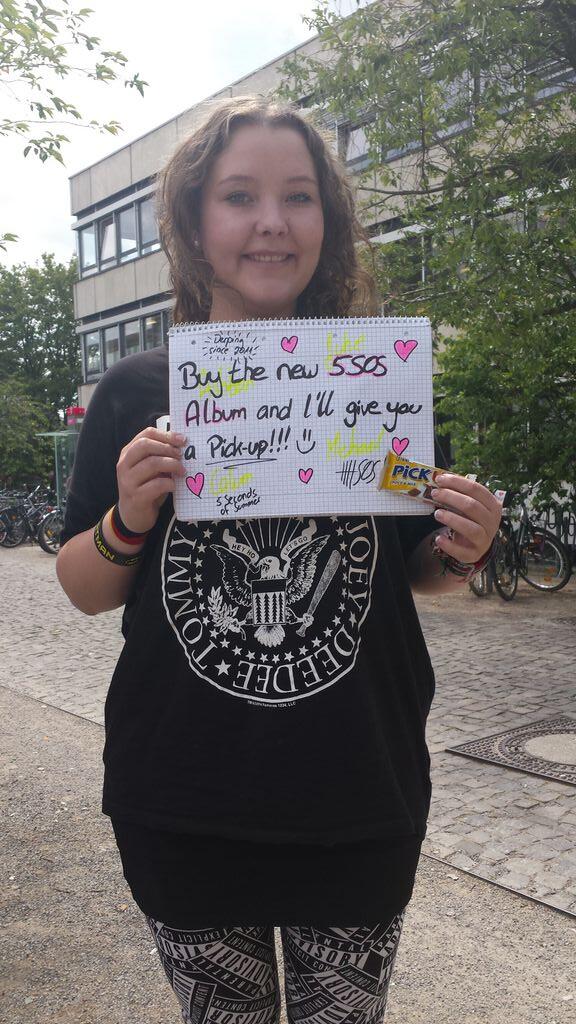 Derping
since 2011
Luke
Buy the new 5SOS
Album and I'll give you
a Pick-up!!!
Michael
Calum
5 Seconds
of Summer
SOS
PiCK
HEY HO LET'S GO
TOMMY
JOEY
DEEDEE
MAN
ADVISORY
EXPLICIT CONTENT